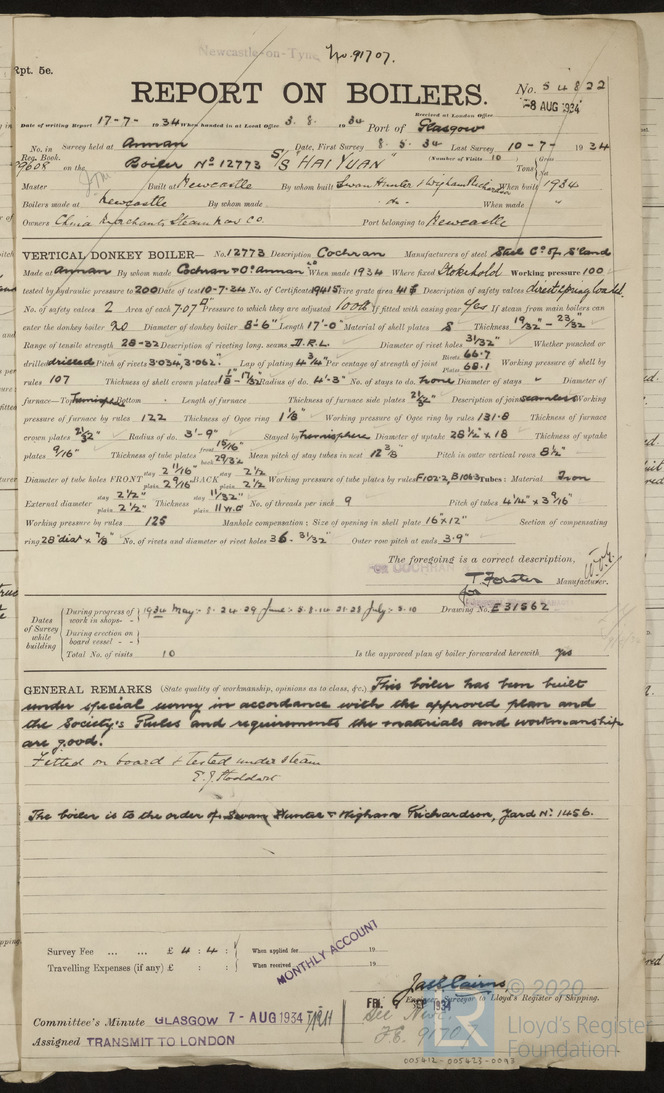 Newcastle-on-Tyne No. 91707.
Rpt. 5e.
REPORT ON BOILERS.
No. 54822
Received at London Office -8 AUG 1934
Date of writing Report 17-7- 1934 When handed in at Local Office 3. 8. 1934 Port of Glasgow
No. in Reg. Book. Survey held at Annan Date, First Survey 8. 5. 34 Last Survey 10-7- 1934
on the Boiler No 12773 S/S "HAI YUAN" (Number of Visits 10) Tons Gross Net
Master Built at Newcastle By whom built Swan Hunter & Wigham Richardson When built 1934
Boilers made at Newcastle By whom made -do- When made "
Owners China Merchants Steam Nav Co. Port belonging to Newcastle
VERTICAL DONKEY BOILER— No. 12773 Description Cochran Manufacturers of steel Steel Co of S'land
Made at Annan By whom made Cochran & Co Annan Ld When made 1934 Where fixed Stokehold Working pressure 100
tested by hydraulic pressure to 200 Date of test 10-7-34 No. of Certificate 19415 Fire grate area 41 Description of safety valves direct spring loaded.
No. of safety valves 2 Area of each 7.07 Pressure to which they are adjusted 100 lb If fitted with easing gear Yes If steam from main boilers can
enter the donkey boiler no Diameter of donkey boiler 8'-6" Length 17'-0" Material of shell plates S Thickness 19/32" - 23/32"
Range of tensile strength 28-32 Description of riveting long. seams D.R.L. Diameter of rivet holes 31/32" Whether punched or
drilled drilled Pitch of rivets 3.034" 3.062" Lap of plating 4 3/4" Per centage of strength of joint Rivets 66.7 Plates 68.1 Working pressure of shell by
rules 107 Thickness of shell crown plates Radius of do. 4'-3" No. of stays to do. None Diameter of stays " Diameter of
furnace—Top Hemisphere Bottom Length of furnace Thickness of furnace side plates 21/32" Description of joint seamless Working
pressure of furnace by rules 122 Thickness of Ogee ring 1 1/8" Working pressure of Ogee ring by rules 131.8 Thickness of furnace
crown plates 21/32" Radius of do. 3'-9" Stayed by hemisphere Diameter of uptake 28 1/2" x 18 Thickness of uptake
plates 9/16" Thickness of tube plates front 15/16" back 29/32 Mean pitch of stay tubes in nest 12 3/8 Pitch in outer vertical rows 8 1/2"
Diameter of tube holes FRONT stay 2 11/16" plain 2 9/16" BACK stay 2 1/2 plain 2 1/2 Working pressure of tube plates by rules F102.2, B106.3 Tubes: Material Iron
External diameter stay 2 1/2" plain 2 1/2" Thickness stay 11/32" plain 11 W.G No. of threads per inch 9 Pitch of tubes 4 1/4" x 3 9/16"
Working pressure by rules 125 Manhole compensation: Size of opening in shell plate 16" x 12" Section of compensating
ring 28" diar x 7/8" No. of rivets and diameter of rivet holes 36. 31/32" Outer row pitch at ends 3.9"
The foregoing is a correct description,
for T. Forster Manufacturer.
Dates of Survey while building
During progress of work in shops - - 1934 May:- 8. 24. 29. June:- 5. 8. 14. 21. 28 July:- 5. 10 Drawing No. E31562
During erection on board vessel - -
Total No. of visits 10 Is the approved plan of boiler forwarded herewith yes
GENERAL REMARKS (State quality of workmanship, opinions as to class, &c.) This boiler has been built
under special survey in accordance with the approved plan and
the Society's Rules and requirements the materials and workmanship
are good.
Fitted on board & tested under steam
E. J. Stoddart
The boiler is to the order of Swan Hunter & Wigham Richardson, Yard No 1456.
Survey Fee ... ... £ 4 : 4 : When applied for 19
Travelling Expenses (if any) £ : : When received 19
MONTHLY ACCOUNT
Jas Cairns
Engineer Surveyor to Lloyd's Register of Shipping.
FRI. SEP 1934
Committee's Minute GLASGOW 7 - AUG 1934
Assigned TRANSMIT TO LONDON
See Nwc.
F.E. 91707
© 2020
LR
Lloyd's Register
Foundation
005412-005423-0093